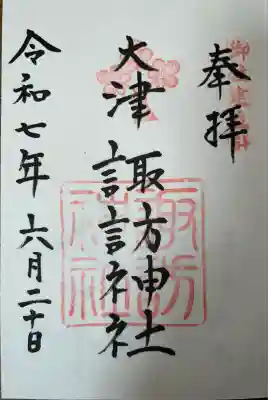 奉拝
大津 諏訪神社
諏訪神社
令和七年 六月二十日